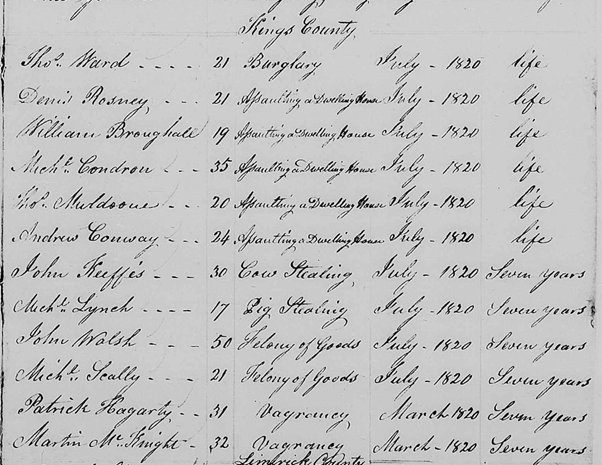 Kings County
Thos. Ward - - - - 21 Burglary July - 1820 life
Denis Rosney - - 21 Assaulting a Dwelling House July - 1820 life
William Broughall 19 Assaulting a Dwelling House July - 1820 life
Michl. Condron - - 35 Assaulting a Dwelling House July - 1820 life
Thos. Muldoone - - 20 Assaulting a Dwelling House July - 1820 life
Andrew Conway - - - 24 Assaulting a Dwelling House July - 1820 life
John Keeffes - - - 30 Cow Stealing July - 1820 Seven years
Michl. Lynch - - - - 17 Pig Stealing July - 1820 Seven years
John Walsh - - - - 50 Felony of Goods July - 1820 Seven years
Michl. Scally - - - - 21 Felony of Goods July - 1820 Seven years
Patrick Hagarty - - 51 Vagrancy March 1820 Seven years
Martin Mc. Knight - 32 Vagrancy March - 1820 Seven years
Limerick County